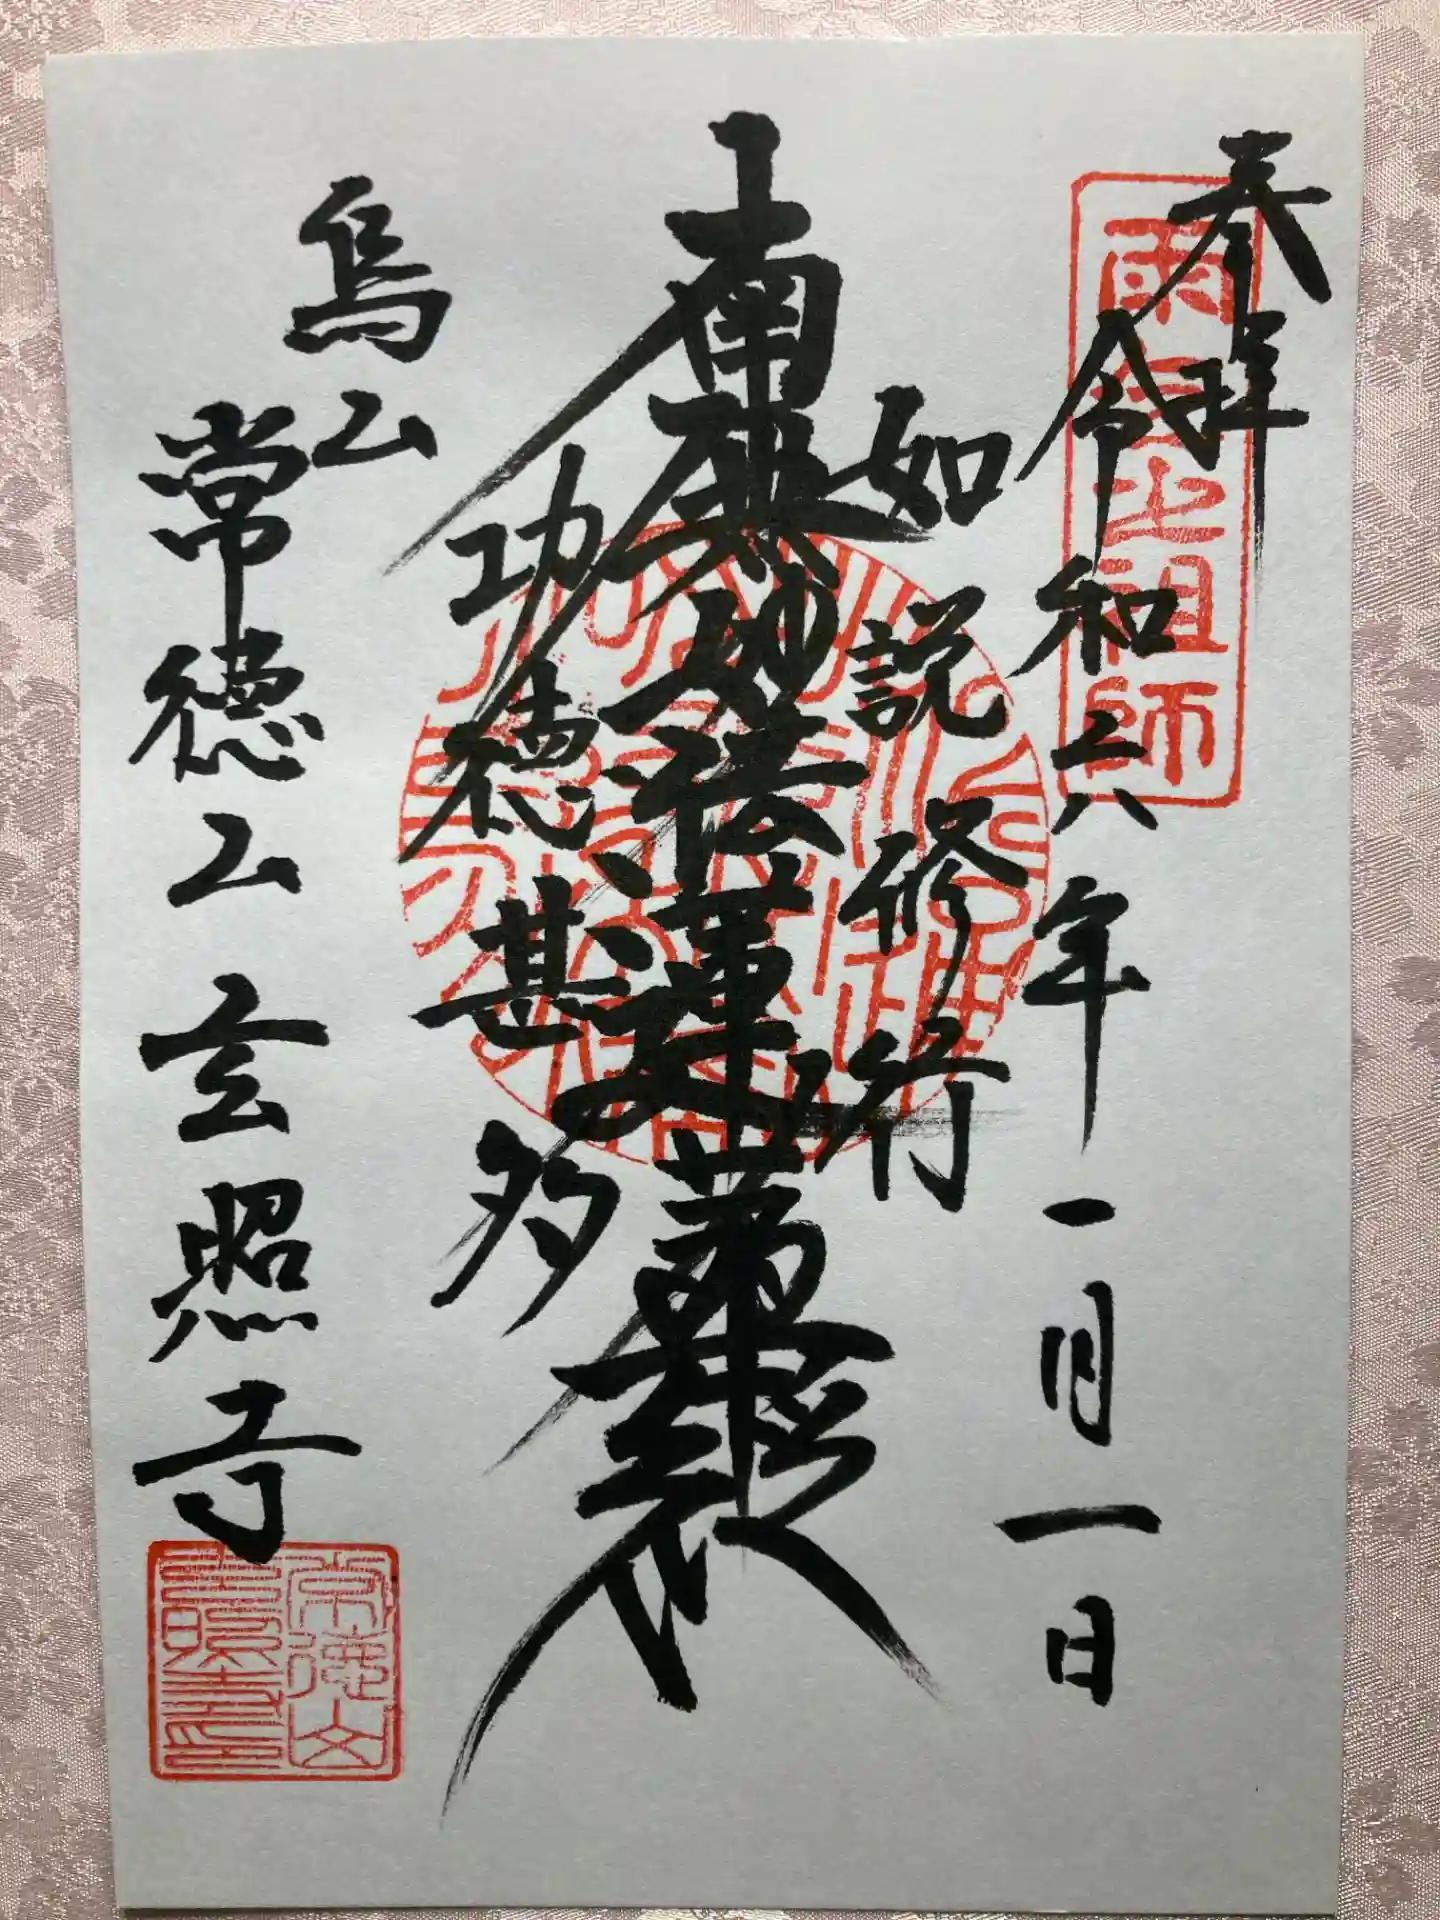 奉拝
雨乞之祖師
令和六年一月一日
如説修行
南無妙法蓮華経
功徳甚多
烏山
常徳山玄照寺
常徳山